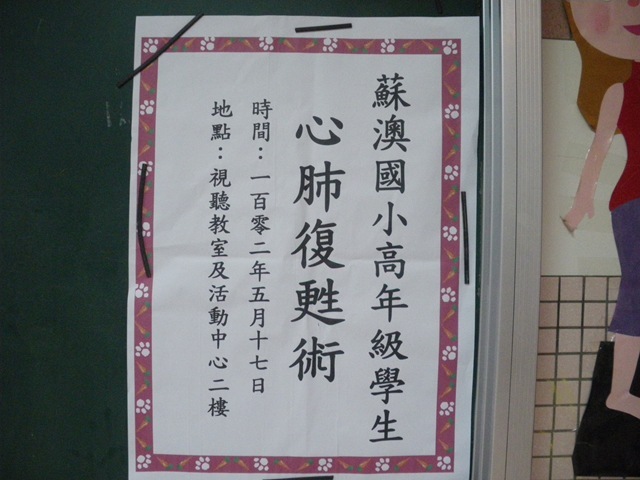 蘇澳國小高年級學生
心肺復甦術
時間：一百零二年五月十七日
地點：視聽教室及活動中心二樓